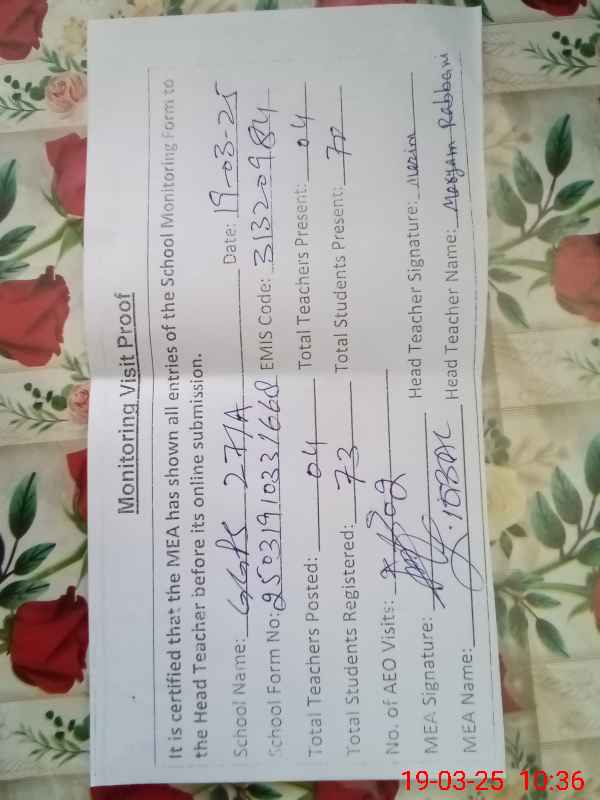 Monitoring Visit Proof
It is certified that the MEA has shown all entries of the School Monitoring Form to
the Head Teacher before its online submission.
School Name: GGPS 277/A Date: 19-03-25
School Form No: 25031910331668 EMIS Code: 31320984
Total Teachers Posted: 04 Total Teachers Present: 04
Total Students Registered: 73 Total Students Present: 70
No. of AEO Visits: 02
MEA Signature: Head Teacher Signature:
MEA Name: IQBAL Head Teacher Name: Maryam Rabbani
19-03-25 10:36